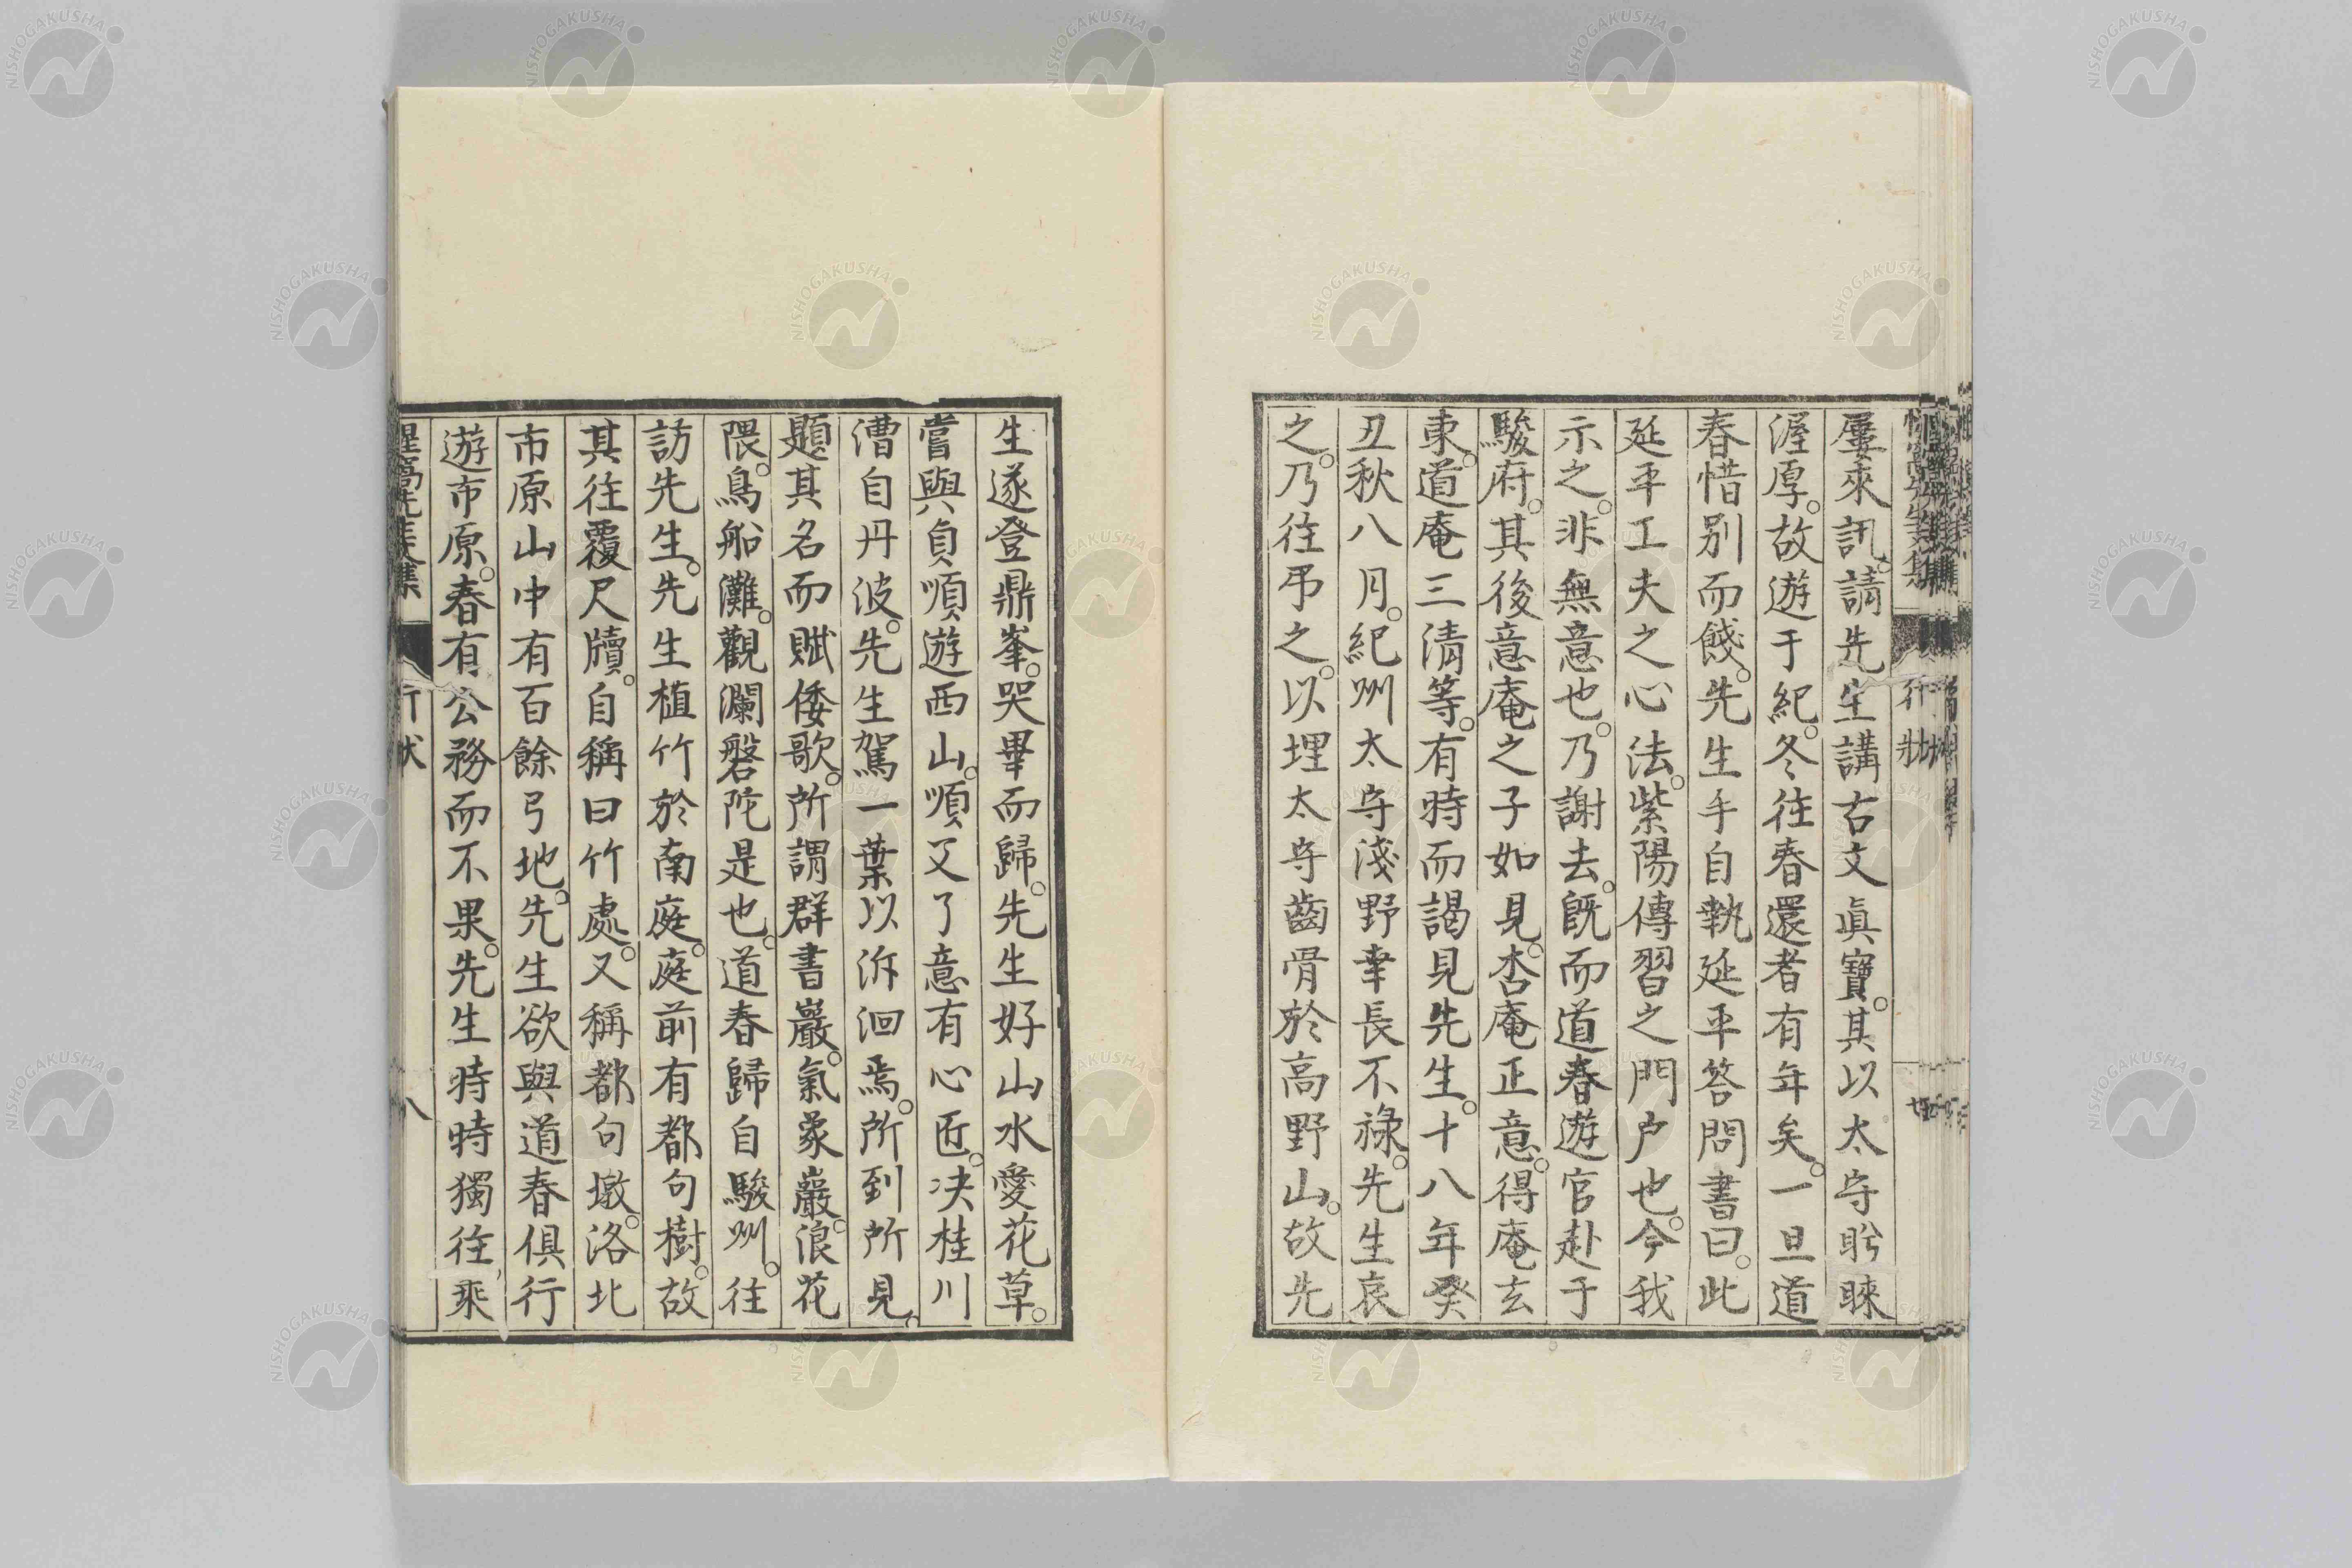 屢來訊。請先生講古文眞寶。其以太守眤睞
渥厚。故遊于紀。冬往春還者有年矣。一旦道
春惜別而餞。先生手自執延平答問書曰。此
延平工夫之心法。紫陽傳習之門户也。今我
示之。非無意也。乃謝去。既而道春遊官赴于
駿府。其後意庵之子如見。杏庵正意。得庵玄
東。道庵三清等。有時而謁見先生。十八年癸
丑秋八月。紀州太守淺野幸長不祿。先生哀
之。乃往弔之。以埋太守齒骨於高野山。故先
生遂登鼎峯。哭畢而歸。先生好山水愛花草。
嘗與貞順遊西山。順又了意有心匠。决桂川
漕自丹波。先生駕一葉以泝洄焉。所到所見。
題其名而賦倭歌。所謂群書巖。氣象巖。浪花
隈。鳥船灘。觀瀾磐陀是也。道春歸自駿州。往
訪先生。先生植竹於南庭。庭前有都句樹。故
其往覆尺牘。自稱曰竹處。又稱都句墩。洛北
市原山中有百餘弓地。先生欲與道春俱行
遊市原。春有公務而不果。先生時時獨往乘
行狀
八
NISHOGAKUSHA